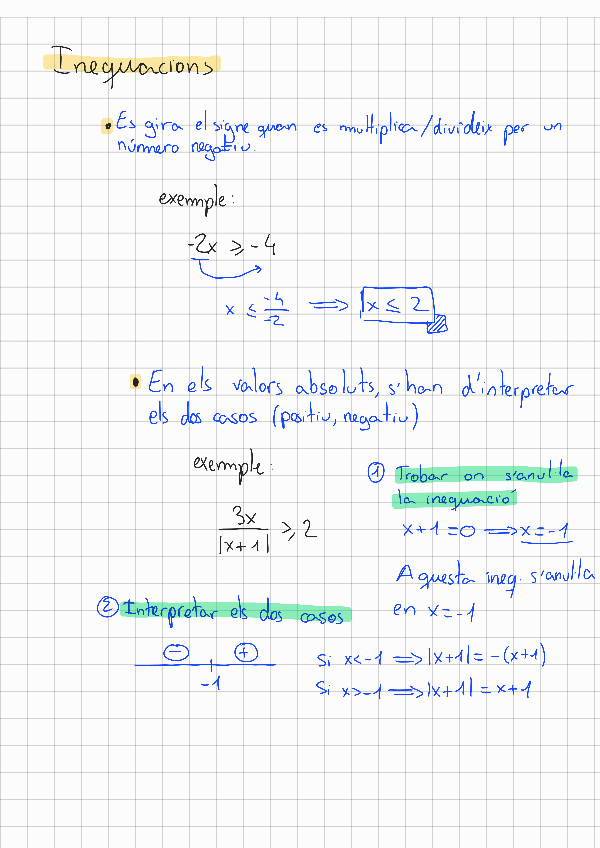 Inequacions
• Es gira el signe quan es multiplica/divideix per un
número negatiu.
exemple:
-2x ≥ -4
x ≤ -4/-2 ⟹ x ≤ 2
• En els valors absoluts, s'han d'interpretar
els dos casos (positiu, negatiu)
exemple:
3x/|x+1| ≥ 2
① Trobar on s'anul·la
la inequació
x+1=0 ⟹ x=-1
Aquesta ineq. s'anul·la
en x=-1
② Interpretar els dos casos
⊖ ⊕
-1
Si x<-1 ⟹ |x+1| = -(x+1)
Si x>-1 ⟹ |x+1| = x+1